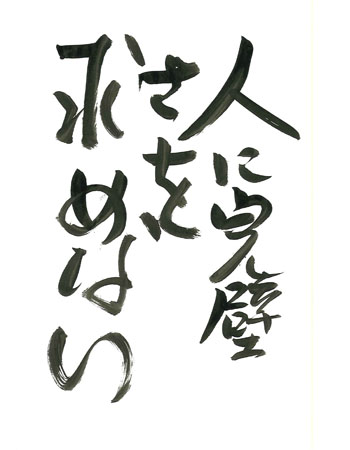 人に完璧
さを
求めない